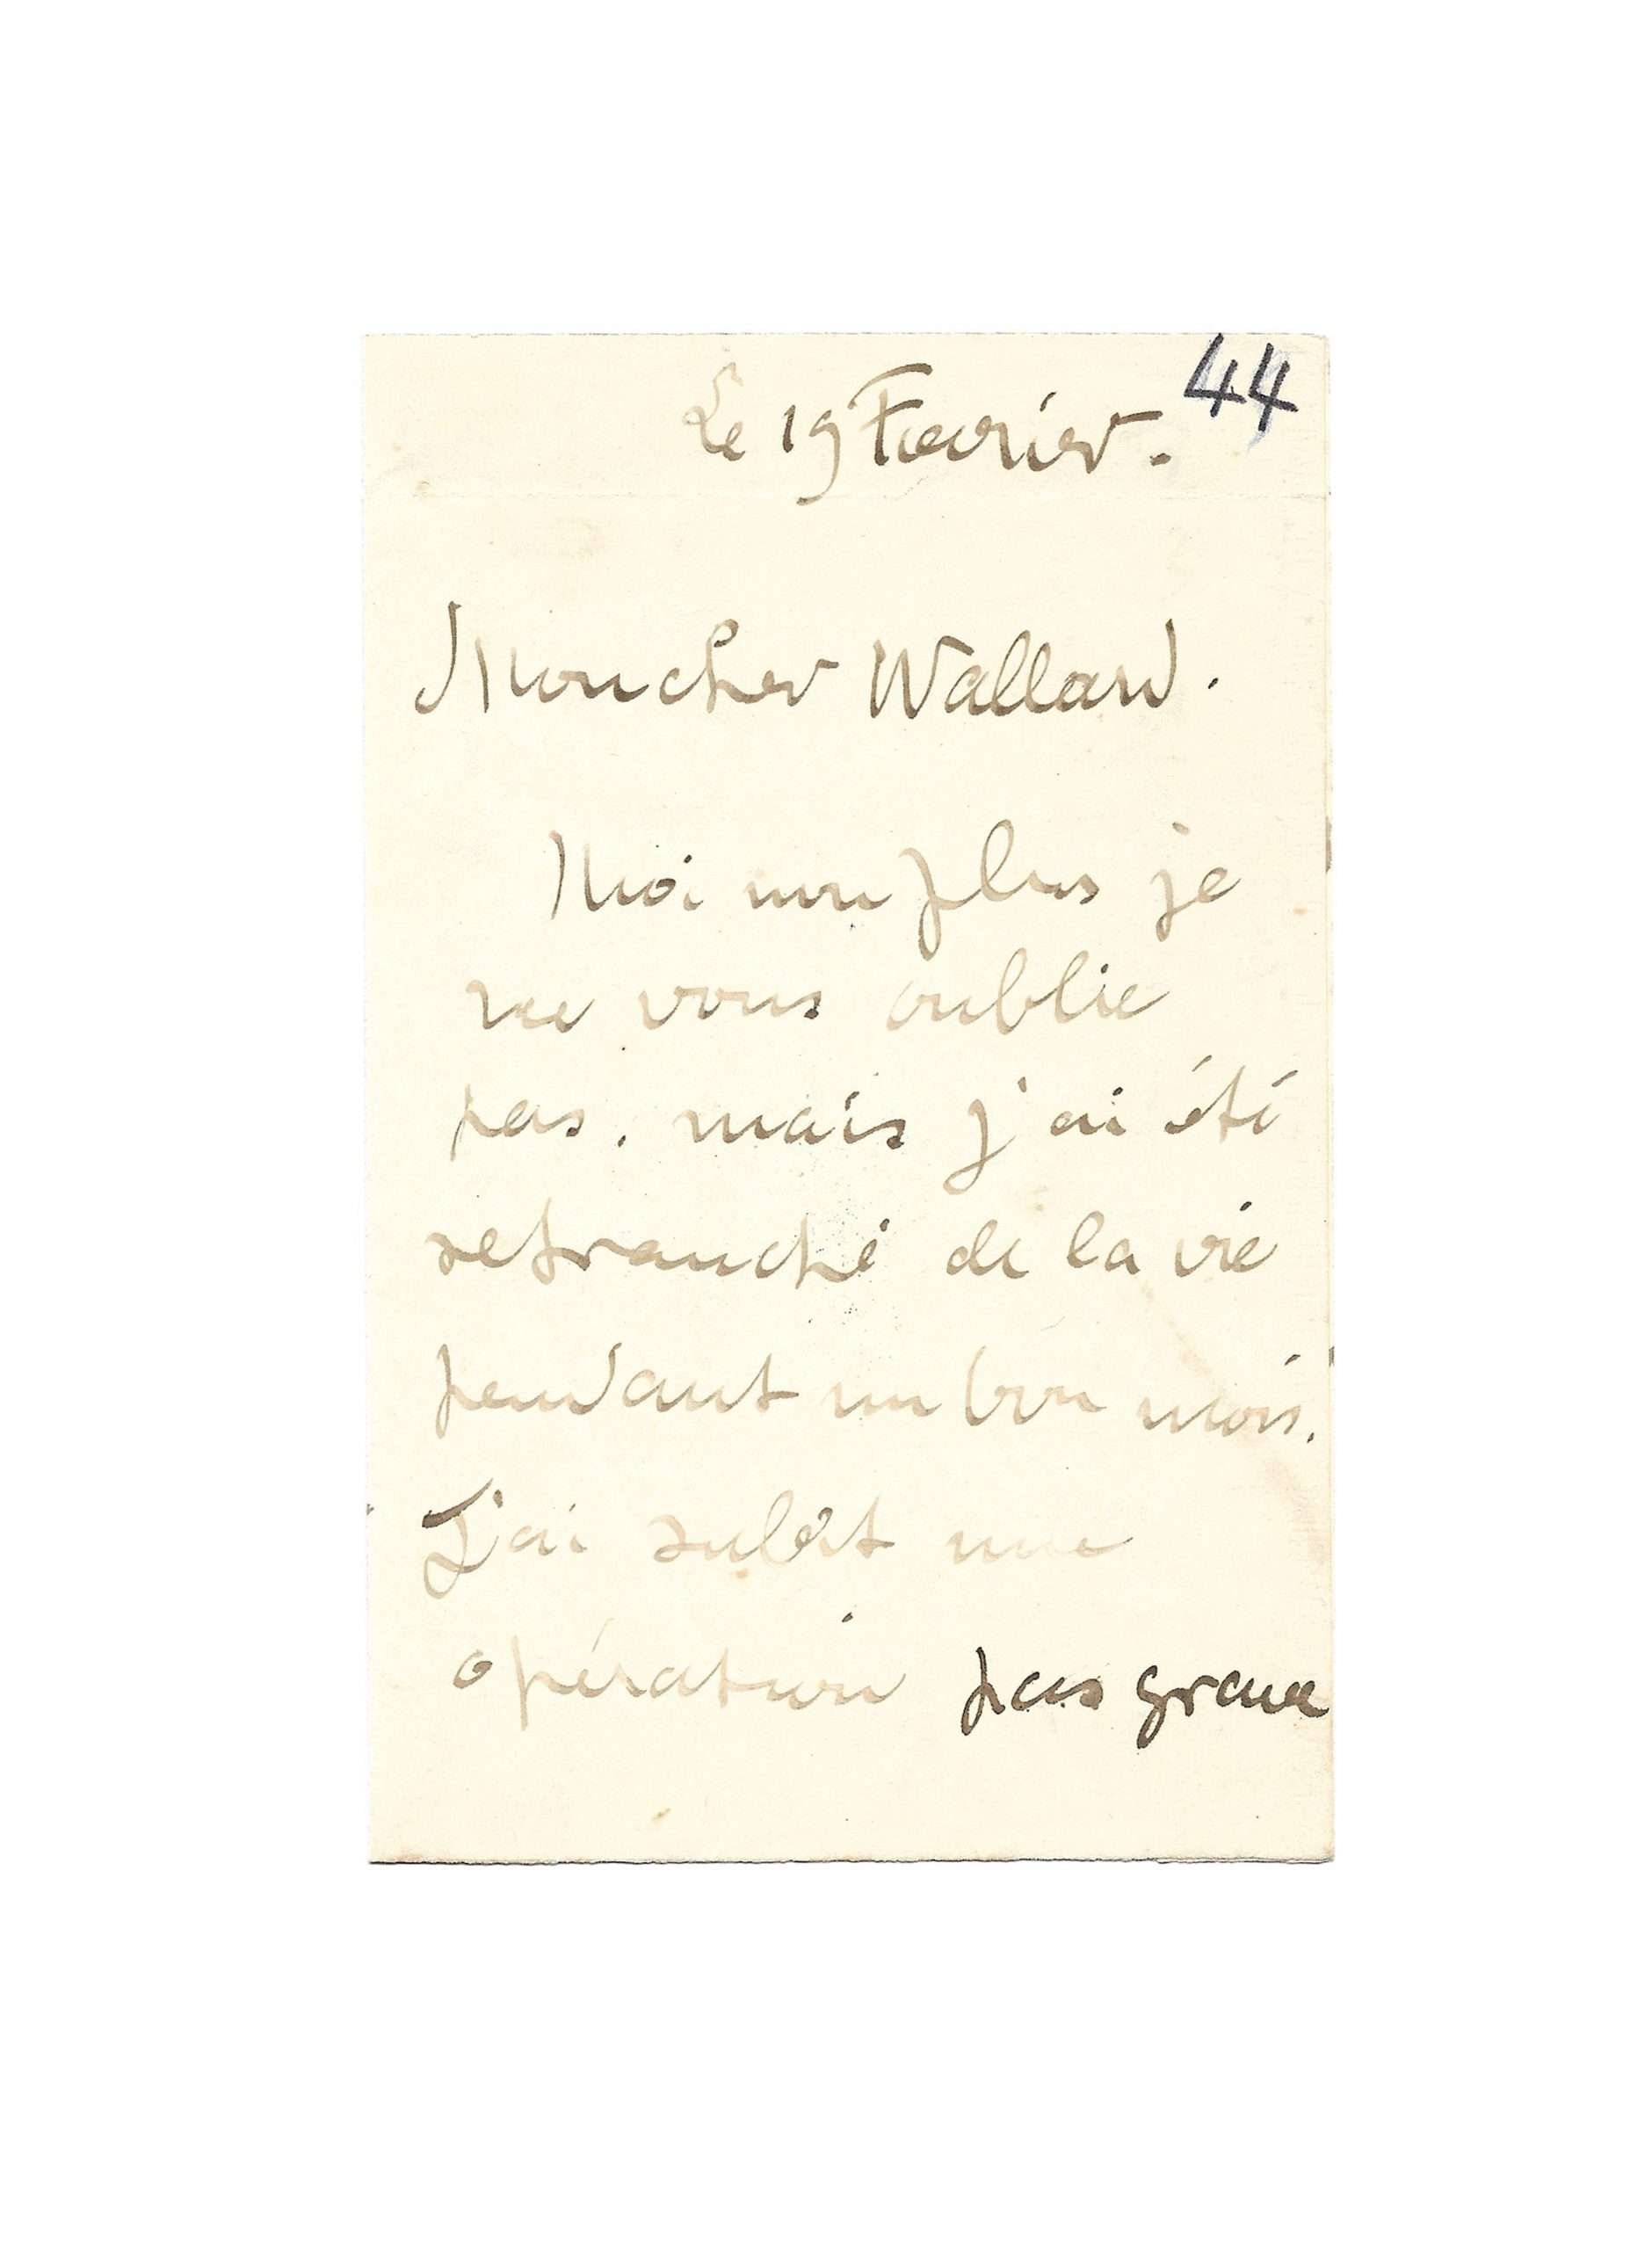 44
Le 19 Fevrier.
Moncher Wallard.
Moi non plus je
ne vous oublie
pas. mais j'ai été
retranché de la vie
pendant un bon mois.
J'ai subit une
opération pas grave